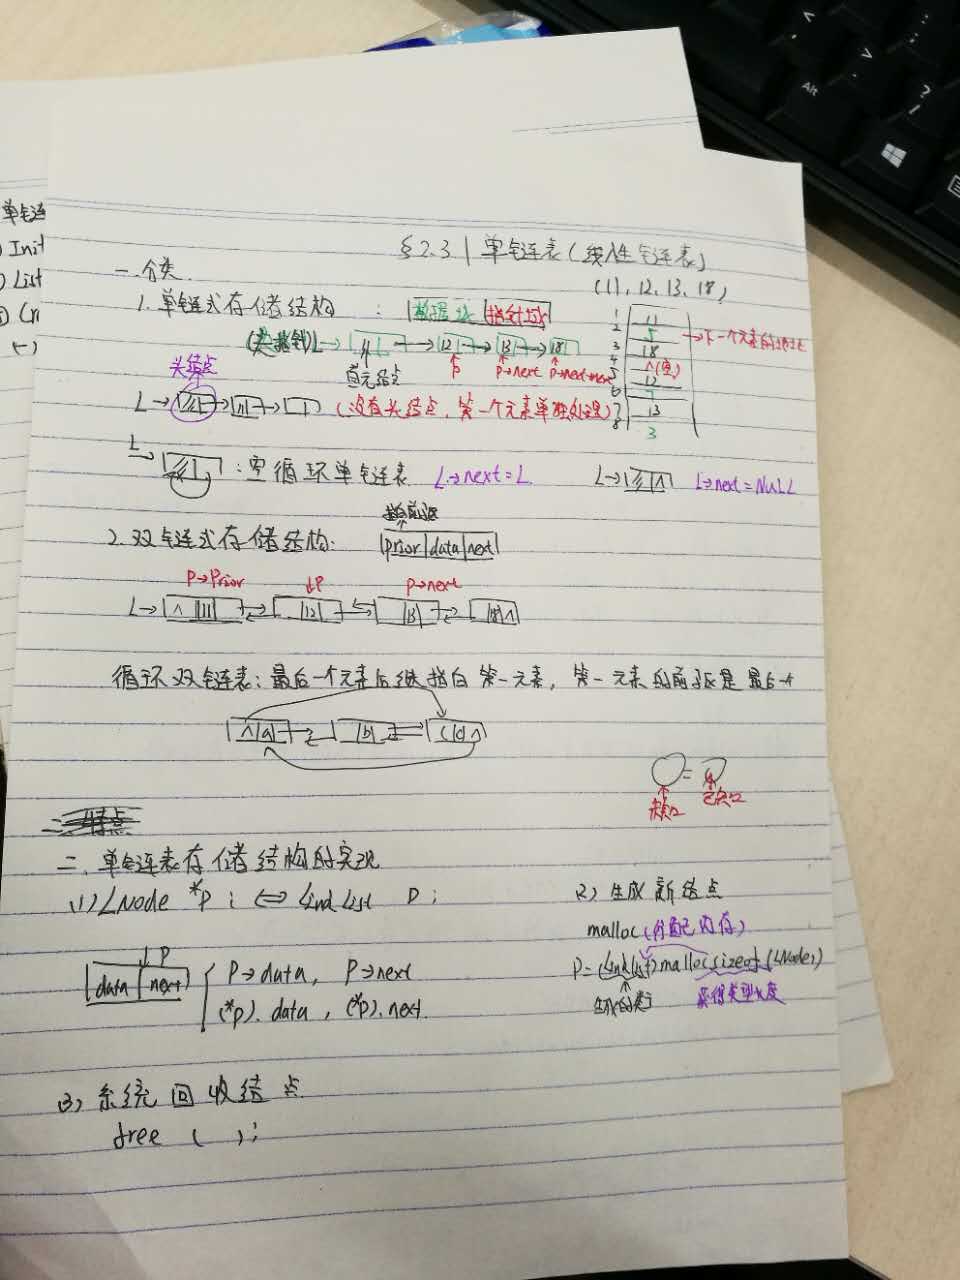 §2.3 | 单链表(线性链表)
一. 分类
(11, 12, 13, 18)
1. 单链式存储结构 : 数据域 指针域
(头指针) L→ 11 → 12 → 13 → 18
p p→next p→next→next
头结点 首元结点
L→ 11 (没有头结点, 第一个元素单独处理)
1 11
2 5
3 18
4 ∧(空)
5 12
6 7
7 13
8 3
→下一个元素的地址
L→ : 空循环单链表 L→next=L L→ ∧ L→next=NULL
指向前驱
2. 双链式存储结构: prior|data|next
p→prior ↓p p→next
L→ ∧ 11 12 13 18 ∧
循环双链表: 最后一个元素后继指向第一元素, 第一元素的前驱是最后一个
∧ a b c d ∧
=
特点
二. 单链表存储结构的实现
(1) LNode *p ; ⇔ LinkList p ;
↓p
data next
p→data, p→next
(*p).data, (*p).next
(2) 生成新结点
malloc (分配内存)
p=(LinkList)malloc sizeof (LNode)
生成的类 获得类型长度
(3) 系统回收结点
free ( );
单链
Init
List
Cr
Alt